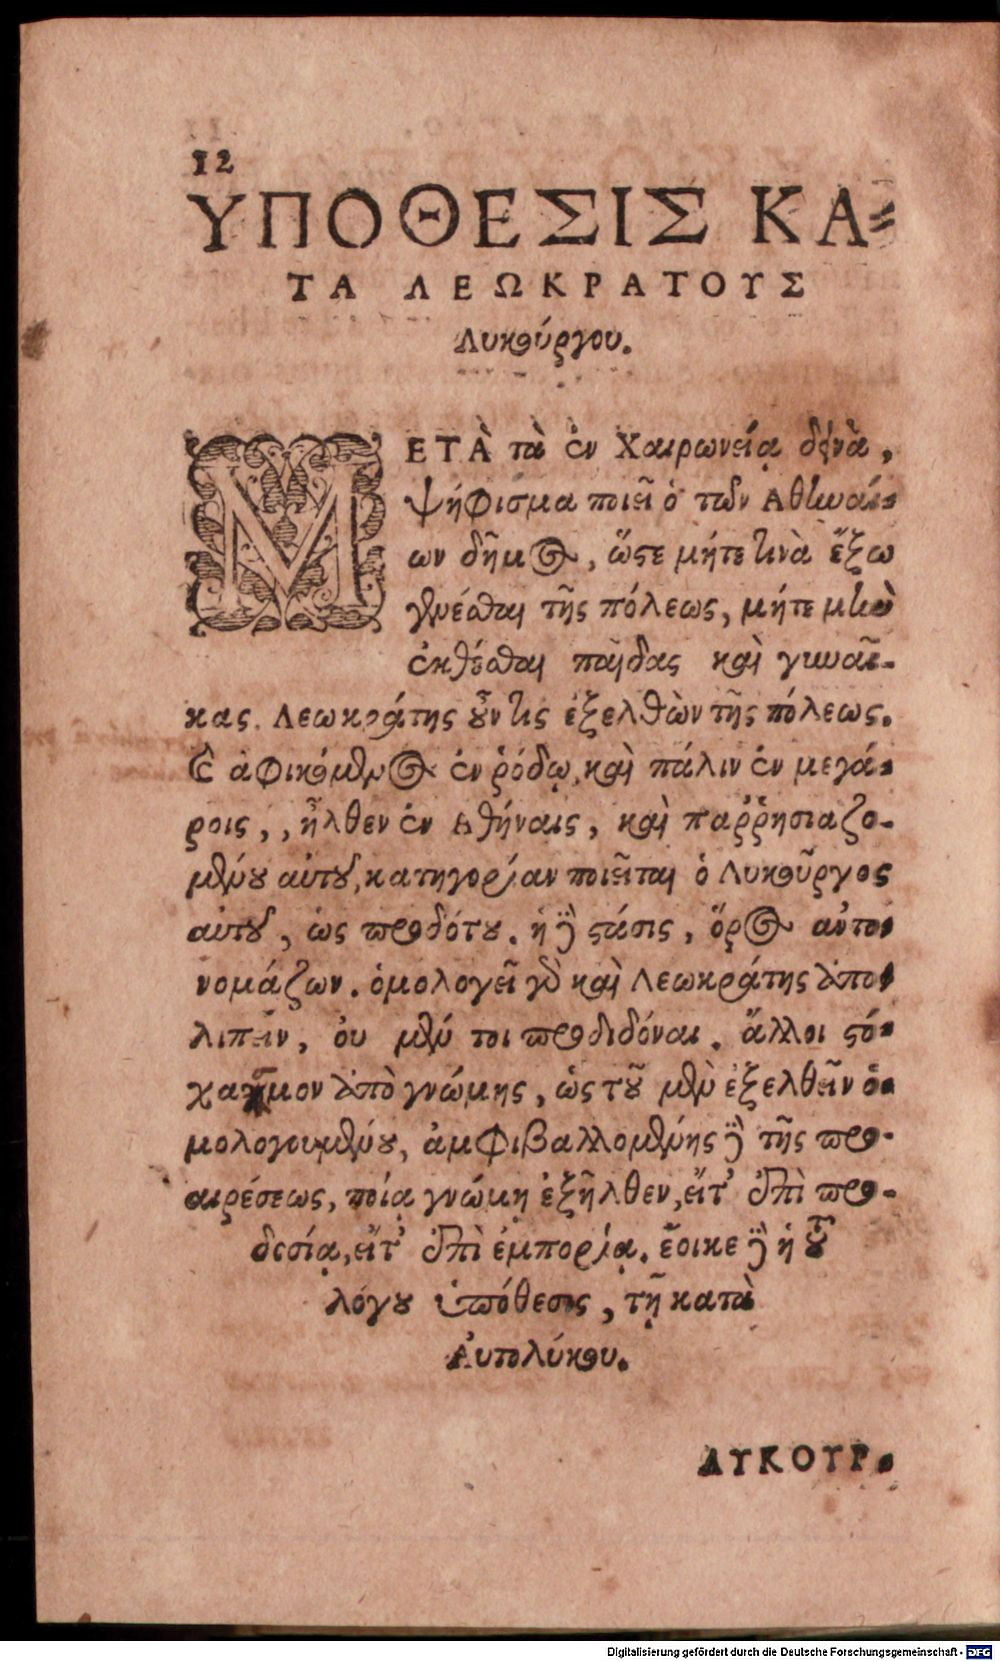 12
ΥΠΟΘΕΣΙΣ ΚΑ-
ΤΑ ΛΕΩΚΡΑΤΟΥΣ
Λυκούργου.
ΜΕΤᾺ τὰ ἐν Χαιρωνείᾳ δεινὰ,
ψήφισμα ποιεῖ ὁ τῶν Ἀθηναί-
ων δῆμος, ὥςε μήτε τινὰ ἔξω
γενέσθαι τῆς πόλεως, μήτε μὴν
ἐκθέσθαι παῖδας καὶ γυναῖ-
κας. Λεωκράτης οὖν τις ἐξελθὼν τῆς πόλεως.
καὶ ἀφικόμενος ἐν ῥόδῳ, καὶ πάλιν ἐν μεγά-
ροις, , ἦλθεν ἐν Ἀθήναις, καὶ παῤῥησιαζο-
μένου αὐτοῦ, κατηγορίαν ποιεῖται ὁ Λυκοῦργος
αὐτοῦ, ὡς προδότου. ἡ δὲ ςάσις, ὅρος ἀντο-
νομάζων. ὁμολογεῖ γὰρ καὶ Λεωκράτης ἀπο-
λιπεῖν, οὐ μέν τοι προδιδόναι. ἄλλοι ςό-
χασμον ἀπὸ γνώμης, ὡς τοῦ μὲν ἐξελθεῖν ὁ-
μολογουμένου, ἀμφιβαλλομένης δὲ τῆς προ-
αιρέσεως, ποίᾳ γνώμῃ ἐξῆλθεν, εἴτ' ἐπὶ προ-
δοσίᾳ, εἴτ' ἐπὶ ἐμπορίᾳ. ἔοικε δὲ ἡ τοῦ
λόγου ὑπόθεσις, τῇ κατὰ
Αὐτολύκου.
ΛΥΚΟΥΡ-
Digitalisierung gefördert durch die Deutsche Forschungsgemeinschaft - DFG